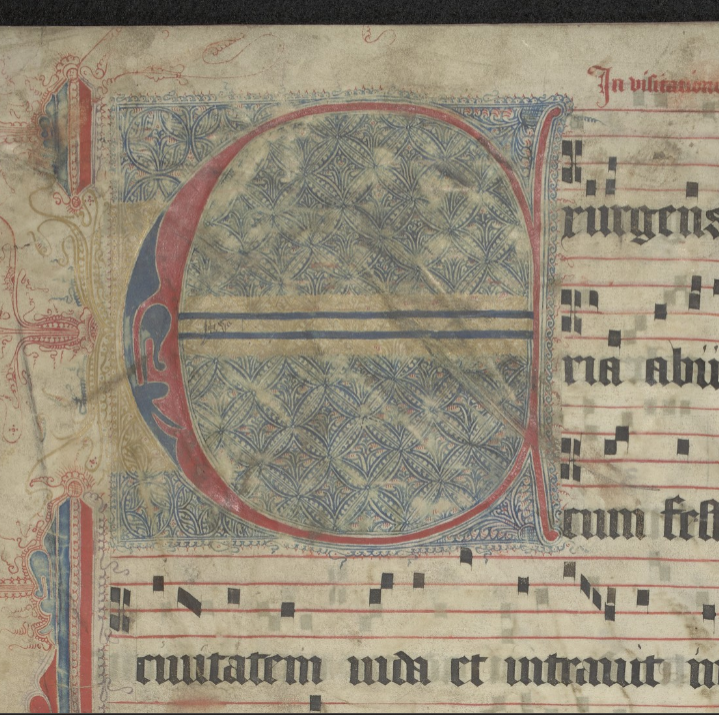 In visitatione
E
xurgens
ria abiit
cum fest
ciuitatem iuda et intrauit in